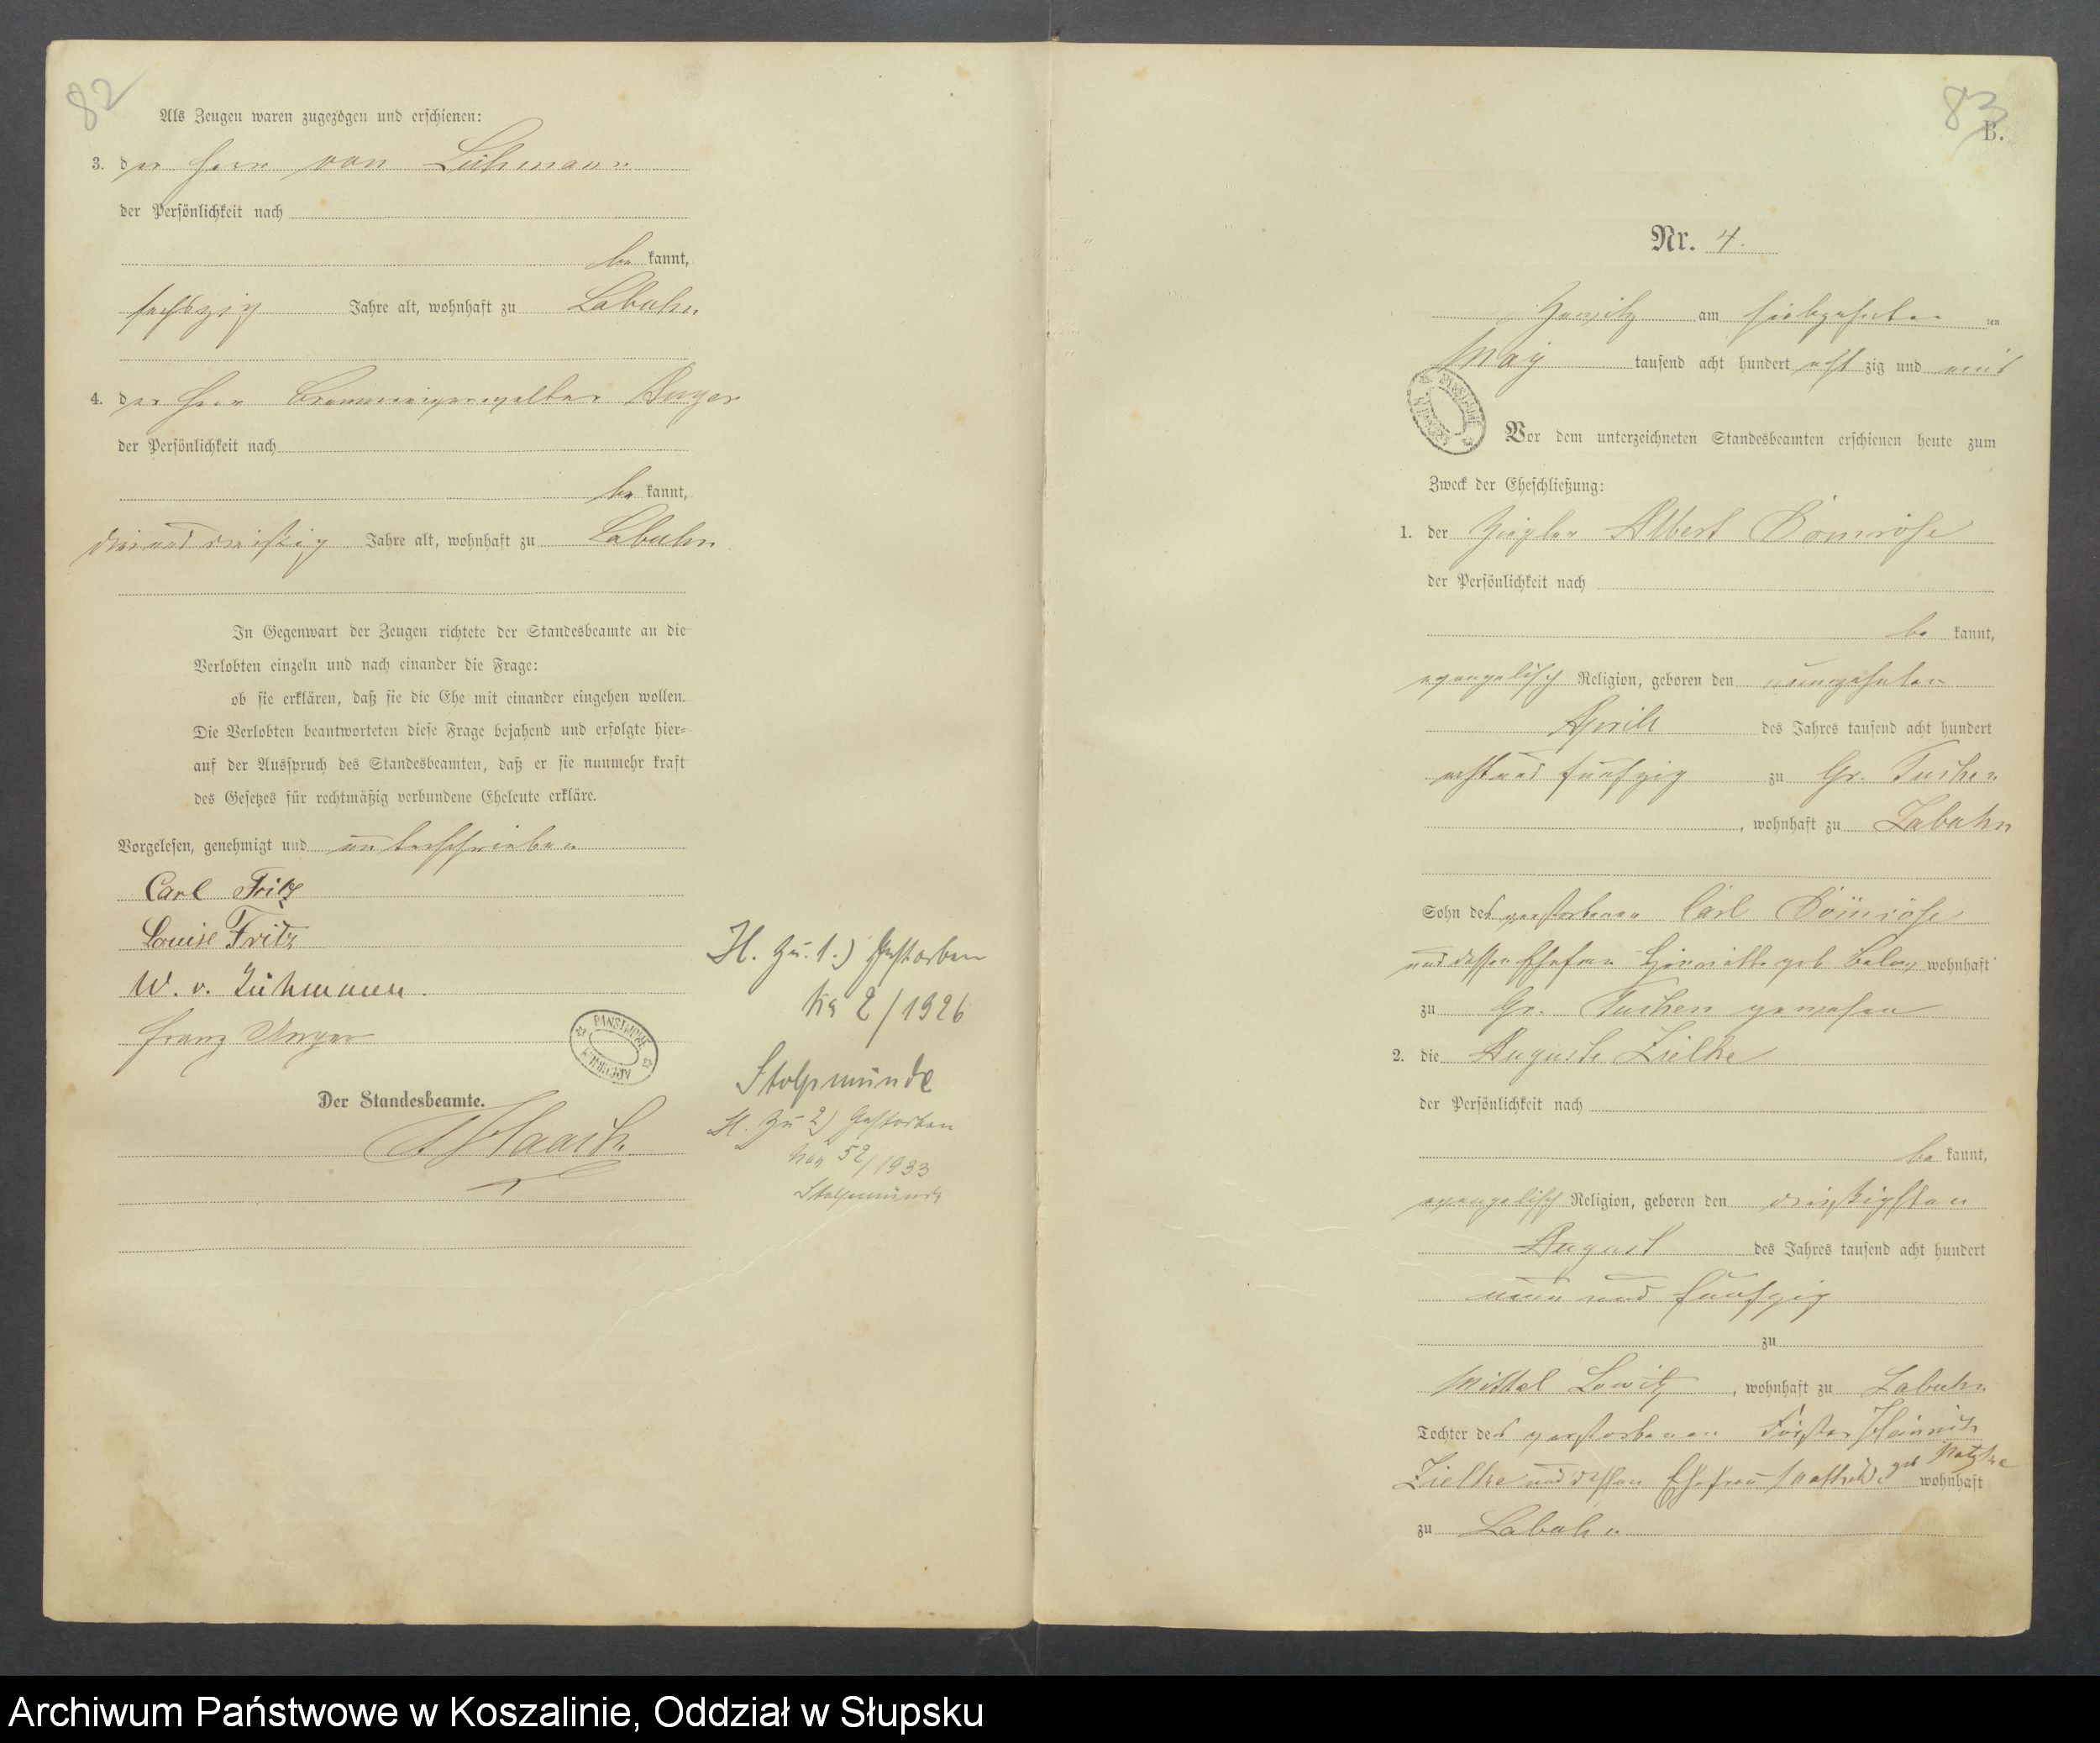 82
Als Zeugen waren zugezogen und erschienen:
3. der Herr von Lühmann
der Persönlichkeit nach
be kannt,
sechszig Jahre alt, wohnhaft zu Labuhn
4. der Herr Brennereiverwalter Unger
der Persönlichkeit nach
be kannt,
dreiunddreißig Jahre alt, wohnhaft zu Labuhn
In Gegenwart der Zeugen richtete der Standesbeamte an die
Verlobten einzeln und nach einander die Frage:
ob sie erklären, daß sie die Ehe mit einander eingehen wollen.
Die Verlobten beantworteten diese Frage bejahend und erfolgte hier-
auf der Ausspruch des Standesbeamten, daß er sie nunmehr kraft
des Gesetzes für rechtmäßig verbundene Eheleute erkläre.
Vorgelesen, genehmigt und unterschrieben
Carl Fritz
Louise Fritz
W. v. Lühmann.
Franz Unger
Der Standesbeamte.
Haack
H. zu. 1.) Gestorben
No 2/1926
Stolpmünde
H. zu 2) Gestorben
52/1933
Stolpmünde
83
B.
Nr. 4.
am siebzehnten ten
May tausend acht hundert acht zig und eins
Vor dem unterzeichneten Standesbeamten erschienen heute zum
Zweck der Eheschließung:
1. der Ziegler Albert Bomröse
der Persönlichkeit nach
be kannt,
evangelisch Religion, geboren den neunzehnten
April des Jahres tausend acht hundert
achtund fünfzig zu Gr. Tuchen
, wohnhaft zu Labuhn
Sohn des verstorbenen Carl Bömröse
und dessen Ehefrau Henriette geb. wohnhaft
zu Gr. Tuchen gewesen
2. die Auguste Zielke
der Persönlichkeit nach
be kannt,
evangelisch Religion, geboren den dreißigsten
August des Jahres tausend acht hundert
neun und fünfzig
zu
Mittel Lowitz, wohnhaft zu Labuhn
Tochter des verstorbenen Förster Heinrich
Zielke und dessen Ehefrau geb Natzke wohnhaft
zu Labuhn
Archiwum Państwowe w Koszalinie, Oddział w Słupsku